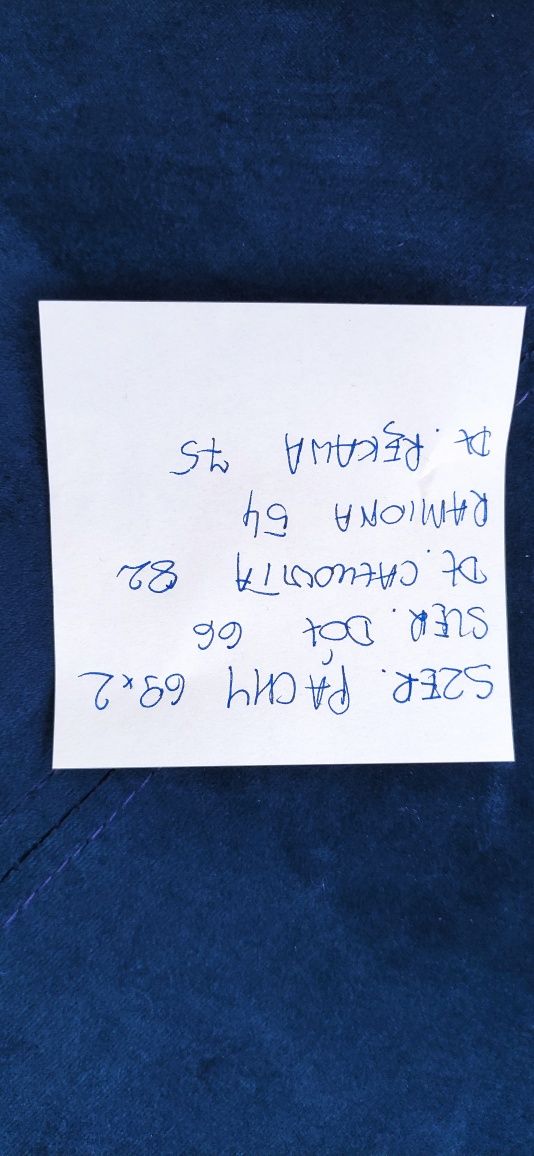 SZER. PACHY 69x2
SZER. DÓŁ 66
DŁ. CAŁKOWITA 82
RAMIONA 54
DŁ. RĘKAWA 75